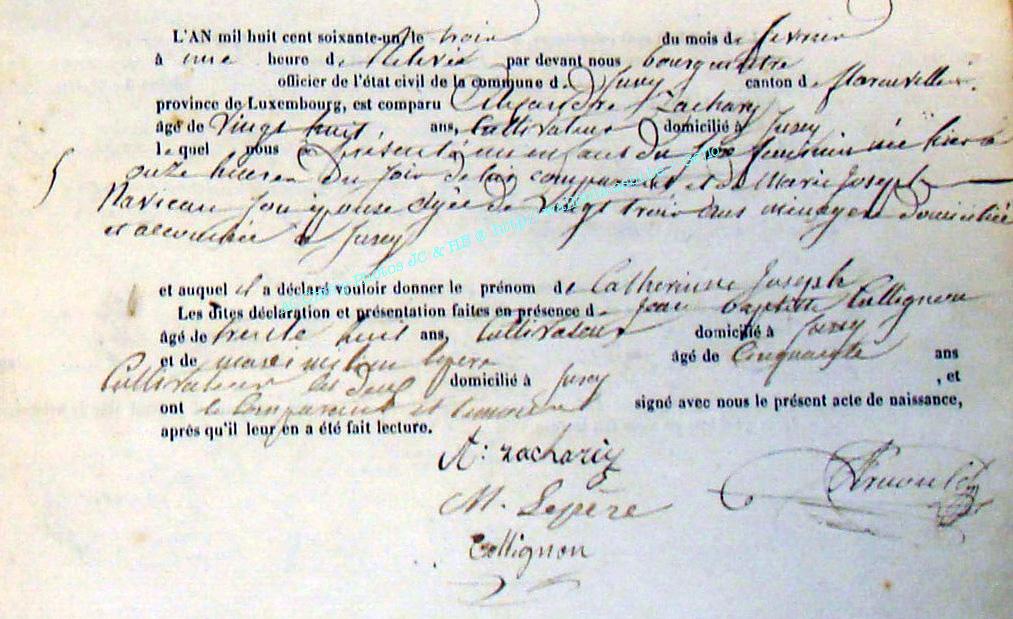 L'AN mil huit cent soixante-un, le trois du mois de fevrier
à une heure de relevée par devant nous bourgmestre
officier de l'état civil de la commune de Juzey canton de
province de Luxembourg, est comparu Alexandre Zachary
âgé de Vingt huit, ans, Cultivateur domicilié à Jusey
lequel nous a présenté un enfant du sexe feminin née hier à
onze heures du soir de lui comparant et de Marie Joseph
son épouse âgée de Vingt trois ans menagere domiciliée
et accouchée à Jusey
et auquel il a déclaré vouloir donner le prénom de Catherinne Joseph
Les dites déclaration et présentation faites en présence de Jean baptiste Collignon
âgé de trente huit ans, Cultivateur domicilié à Jusey
et de maximilien Lepere âgé de Cinquante ans
Cultivateur les deux domicilié à Jusey , et
ont le Comparant et temoins signé avec nous le présent acte de naissance,
après qu'il leur en a été fait lecture.
A: zachariy
M. Lepère
Collignon
Photos JC & HB @